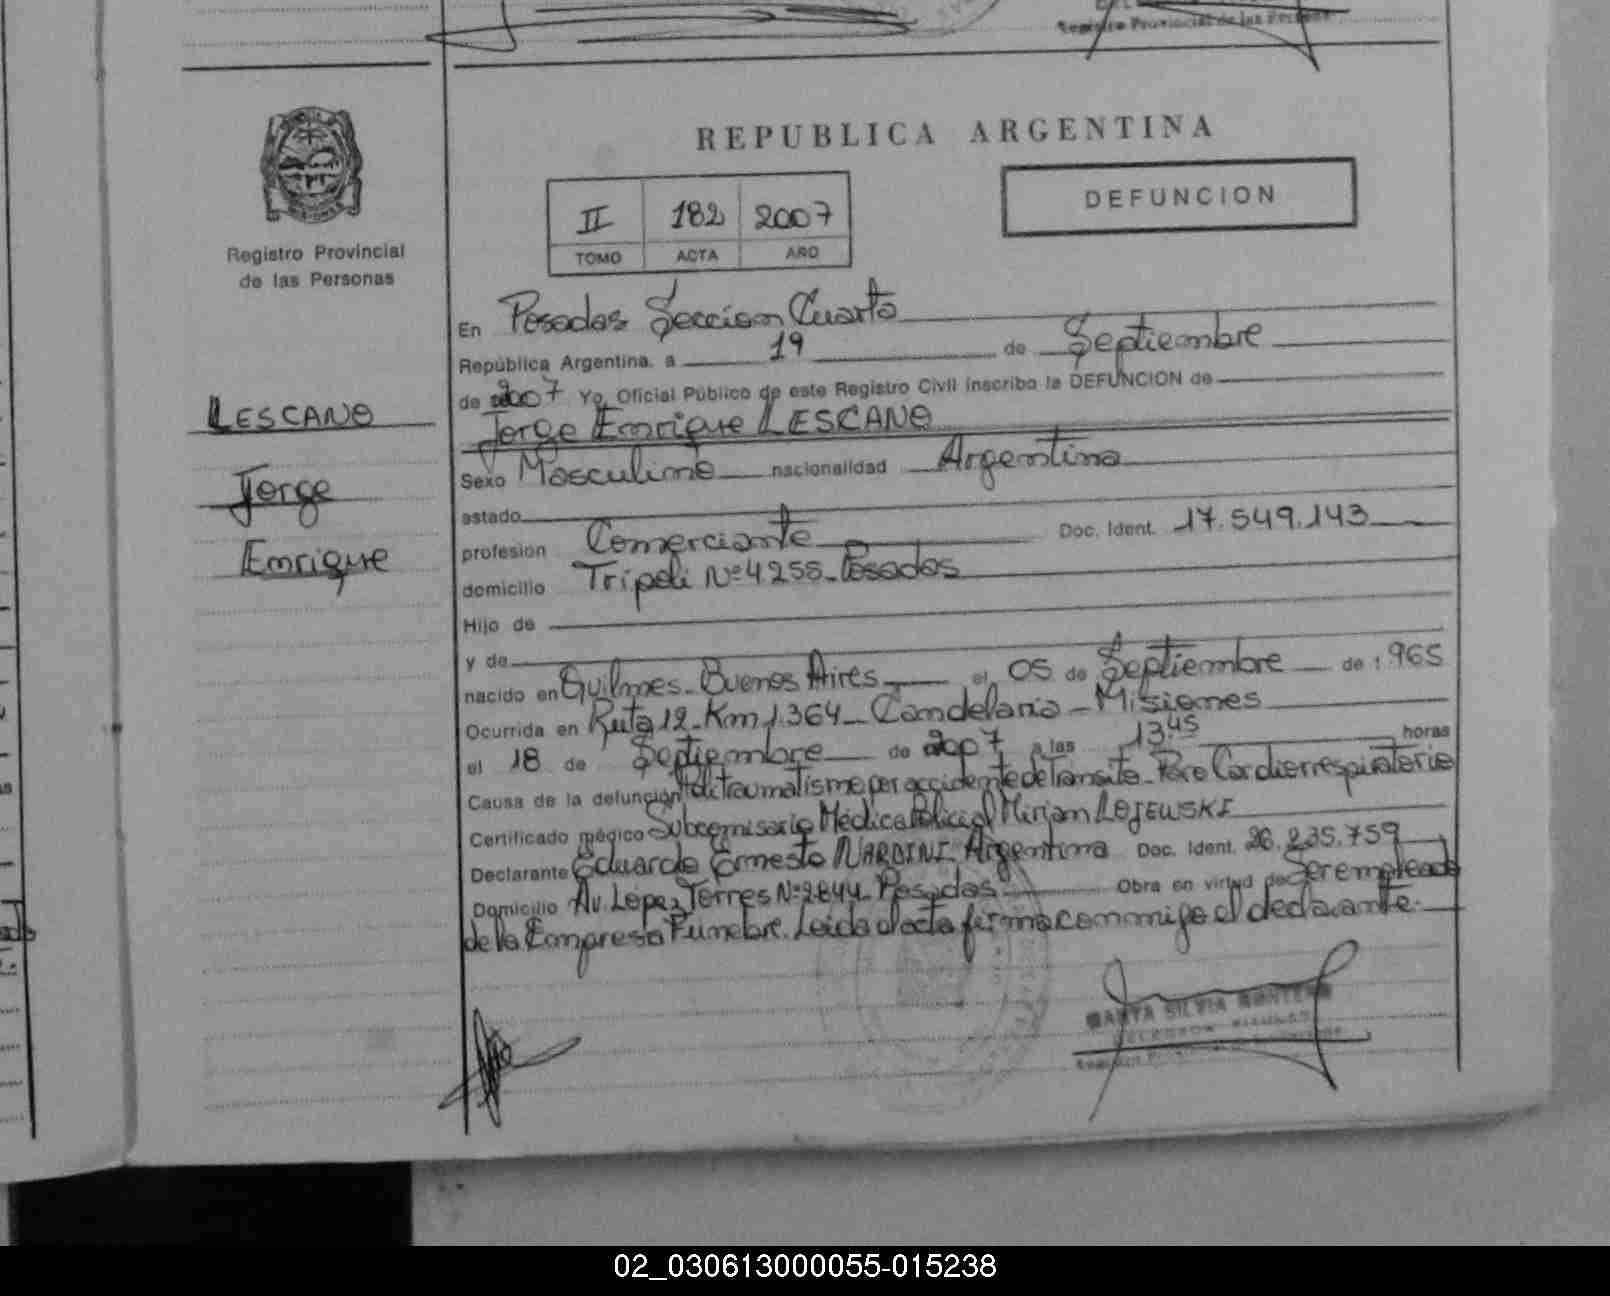 Registro Provincial de las Persona
REPUBLICA ARGENTINA
DEFUNCION
II 182 2007
TOMO ACTA AÑO
Registro Provincial
de las Personas
LESCANO
Jorge
Enrique
En Posadas Seccion Cuarta
República Argentina, a 19 de Septiembre
de 2007 Yo, Oficial Público de este Registro Civil inscribo la DEFUNCION de
Jorge Enrique LESCANO
Sexo Masculino nacionalidad Argentina
estado
profesión Comerciante Doc. Ident. 17.549.143
domicilio Tripoli Nº 4255 - Posadas
Hijo de
y de
nacido en Quilmes - Buenos Aires el 05 de Septiembre de 1.965
Ocurrida en Ruta 12 - Km 1.364 - Candelaria - Misiones
el 18 de Septiembre de 2007 a las 13:45 horas
Causa de la defunción Politraumatismo por accidente de Transito - Paro Cardiorrespiratorio
Certificado médico Subcomisario Médica Policial Mirian LOJEWSKI
Declarante Eduardo Ernesto NARDINI Argentina Doc. Ident. 26.235.759
Domicilio Av. Lopez Torres Nº 2844 - Posadas Obra en virtud de Ser empleado
de la Empresa Fúnebre. Leida el acta firma conmigo el declarante.
SILVIA
02_030613000055-015238